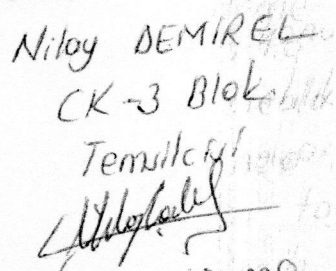 Nilay DEMIREL
CK-3 Blok
Temsilcisi